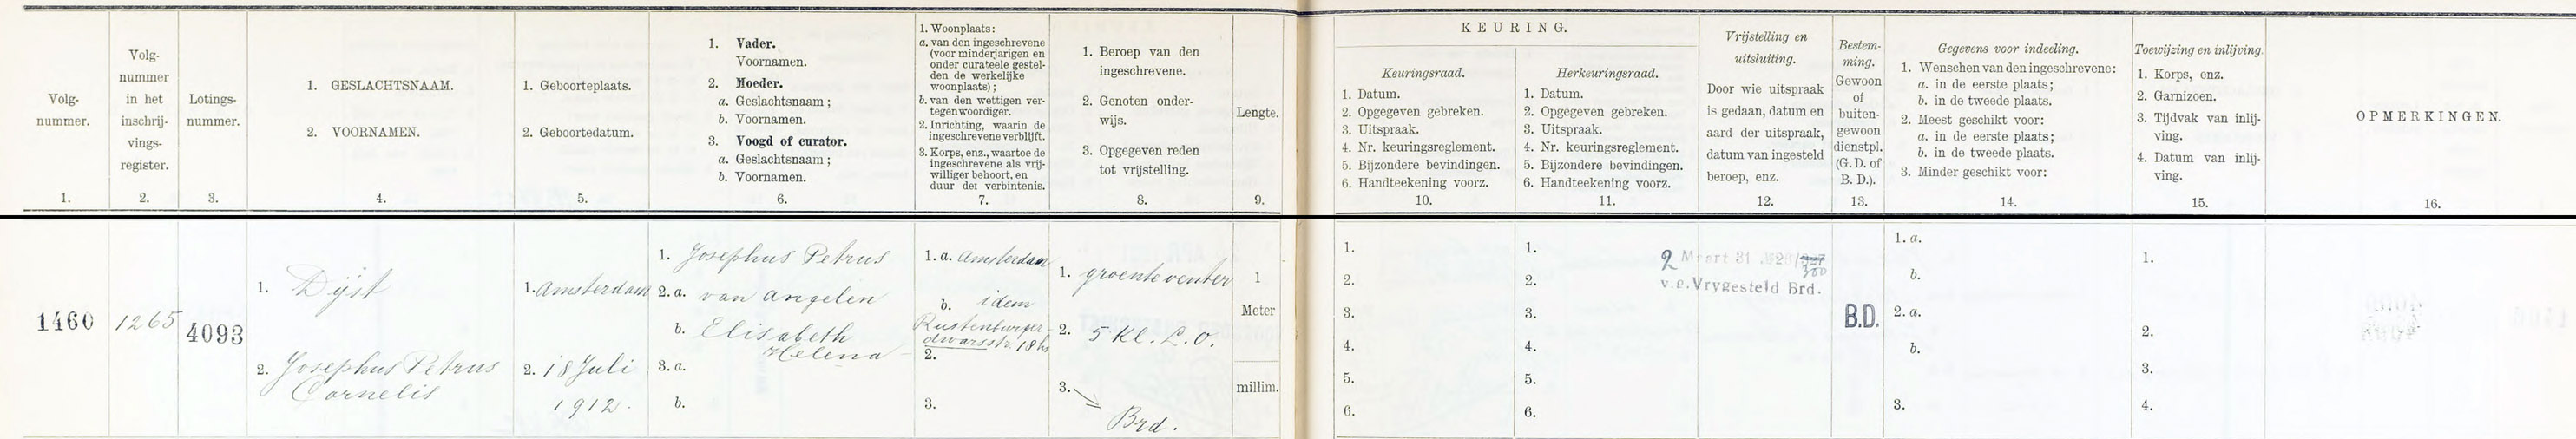 Volg-
nummer.
1.
Volg-
nummer
in het
inschrij-
vings-
register.
2.
Lotings-
nummer.
3.
1. GESLACHTSNAAM.
2. VOORNAMEN.
4.
1. Geboorteplaats.
2. Geboortedatum.
5.
1. Vader.
Voornamen.
2. Moeder.
a. Geslachtsnaam;
b. Voornamen.
3. Voogd of curator.
a. Geslachtsnaam;
b. Voornamen.
6.
1. Woonplaats:
a. van den ingeschrevene
(voor minderjarigen en
onder curateele gestel-
den de werkelijke
woonplaats);
b. van den wettigen ver-
tegenwoordiger.
2. Inrichting, waarin de
ingeschrevene verblijft.
3. Korps, enz., waartoe de
ingeschrevene als vrij-
williger behoort, en
duur der verbintenis.
7.
1. Beroep van den
ingeschrevene.
2. Genoten onder-
wijs.
3. Opgegeven reden
tot vrijstelling.
8.
Lengte.
9.
KEURING.
Keuringsraad.
1. Datum.
2. Opgegeven gebreken.
3. Uitspraak.
4. Nr. keuringsreglement.
5. Bijzondere bevindingen.
6. Handteekening voorz.
10.
Herkeuringsraad.
1. Datum.
2. Opgegeven gebreken.
3. Uitspraak.
4. Nr. keuringsreglement.
5. Bijzondere bevindingen.
6. Handteekening voorz.
11.
Vrijstelling en
uitsluiting.
Door wie uitspraak
is gedaan, datum en
aard der uitspraak,
datum van ingesteld
beroep, enz.
12.
Bestem-
ming.
Gewoon
of
buiten-
gewoon
dienstpl.
(G.D. of
B.D.).
13.
Gegevens voor indeeling.
1. Wenschen van den ingeschrevene:
a. in de eerste plaats;
b. in de tweede plaats.
2. Meest geschikt voor:
a. in de eerste plaats;
b. in de tweede plaats.
3. Minder geschikt voor:
14.
Toewijzing en inlijving.
1. Korps, enz.
2. Garnizoen.
3. Tijdvak van inlij-
ving.
4. Datum van inlij-
ving.
15.
OPMERKINGEN.
16.
1460
1265
4093
1. Dijst
2. Josephus Petrus
Cornelis
1. Amsterdam
2. 18 Juli
1912.
1. Josephus Petrus
2. a. van Angelen
b. Elisabeth
Helena
3. a.
b.
1. a. Amsterdam
b. idem
Rustenburger-
dwarsstr. 18 hs
2.
3.
1. groenteventer
2. 5 Kl. L.O.
3.
Brd.
1
Meter
millim.
1.
2.
3.
4.
5.
6.
1.
2.
3.
4.
5.
6.
2 Maart 31
v.g. Vrygesteld Brd.
B.D.
1. a.
b.
2. a.
b.
3.
1.
2.
3.
4.